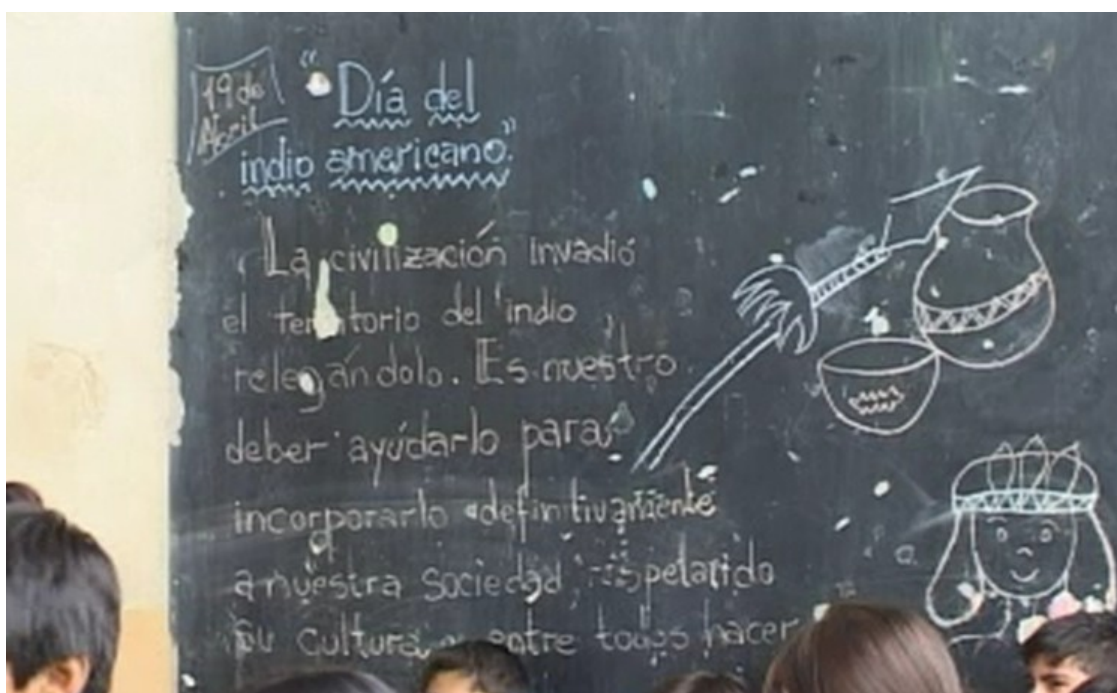 19 de
Abril
"Día del
indio americano"
La civilización invadió
el territorio del indio
relegándolo. Es nuestro
deber ayúdarlo para
incorporarlo definitivamente
a nuestra sociedad, respetando
su cultura y entre todos hacer